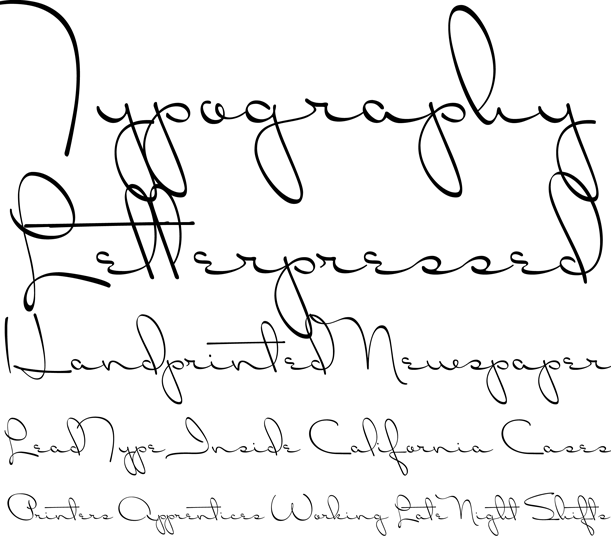 Typography
Letterpressed
Handprinted Newspaper
Lead Type Inside California Cases
Printers Apprentices Working Late Night Shifts